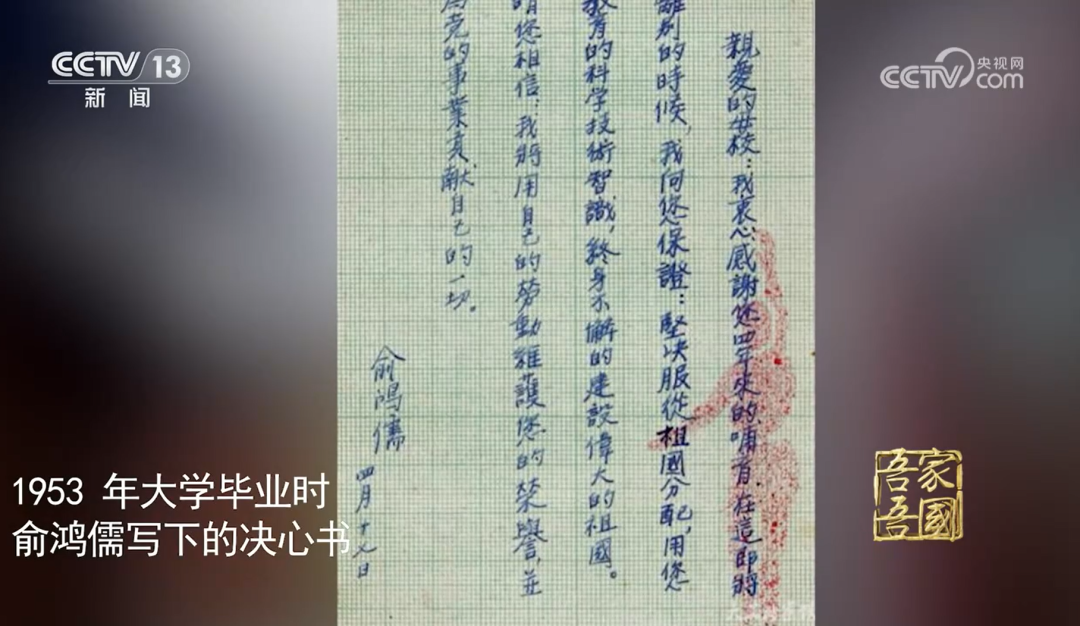 CCTV 13
新闻
央视网
CCTV.com
親愛的母校：我衷心感謝您四年來的哺育，在這即將
離別的時候，我向您保證：堅决服從祖國分配，用您
教育的科学技術智識，終身不懈的建設偉大的祖國。
請您相信：我將用自己的勞動維護您的榮譽，並
克的事業貢献自己的一切。
俞鴻儒
四月十七日
1953 年大学毕业时
俞鸿儒写下的决心书
吾家
吾國